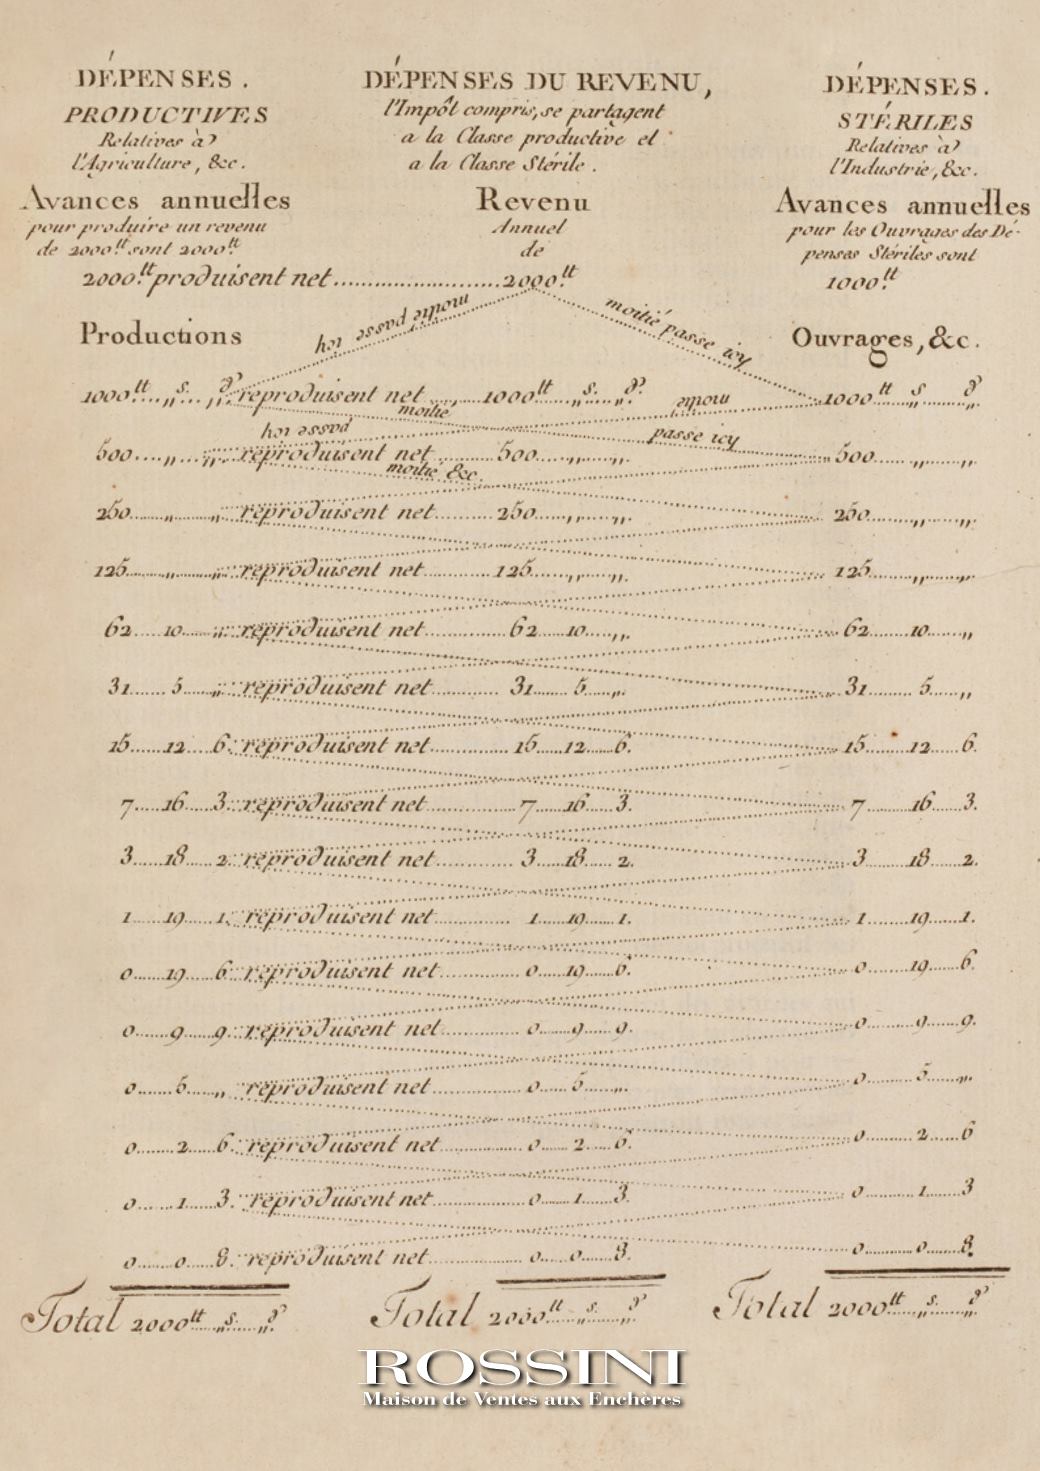 DÉPENSES.
PRODUCTIVES
Relatives à
l'Agriculture, &c.
Avances annuelles
pour produire un revenu
de 2000.tt sont 2000tt
2000.tt produisent net........................2000.tt
Productions
DÉPENSES DU REVENU,
l'Impôt compris, se partagent
a la Classe productive et
a la Classe Stérile.
Revenu
Annuel
de
DÉPENSES.
STÉRILES
Relatives à
l'Industrie, &c.
Avances annuelles
pour les Ouvrages des Dé-
penses Stériles sont
1000.tt
Ouvrages, &c.
moitié passe icy
moitié passe icy
1000tt....„s....„d reproduisent net.......1000tt....„s....„d 1000tt....„s....„d
moitié
moitié
passe icy
passe icy
500....„....„ reproduisent net.......500....„....„ 500....„....„
moitié &c.
250....„....„ reproduisent net.......250....„....„ 250....„....„
125....„....„ reproduisent net.......125....„....„ 125....„....„
62....10....„ reproduisent net.......62....10....„ 62....10....„
31....5....„ reproduisent net.......31....5....„ 31....5....„
15....12....6. reproduisent net.......15....12....6. 15....12....6.
7....16....3. reproduisent net.......7....16....3. 7....16....3.
3....18....2. reproduisent net.......3....18....2. 3....18....2.
1....19....1. reproduisent net.......1....19....1. 1....19....1.
0....19....6. reproduisent net.......0....19....6. 0....19....6.
0....9....9. reproduisent net.......0....9....9. 0....9....9.
0....5....„ reproduisent net.......0....5....„ 0....5....„
0....2....6. reproduisent net.......0....2....6. 0....2....6
0....1....3. reproduisent net.......0....1....3. 0....1....3
0....0....8. reproduisent net.......0....0....8. 0....0....8.
Total 2000tt....„s....„d Total 2000tt....„s....„d Total 2000tt....„s....„d
ROSSINI
Maison de Ventes aux Enchères